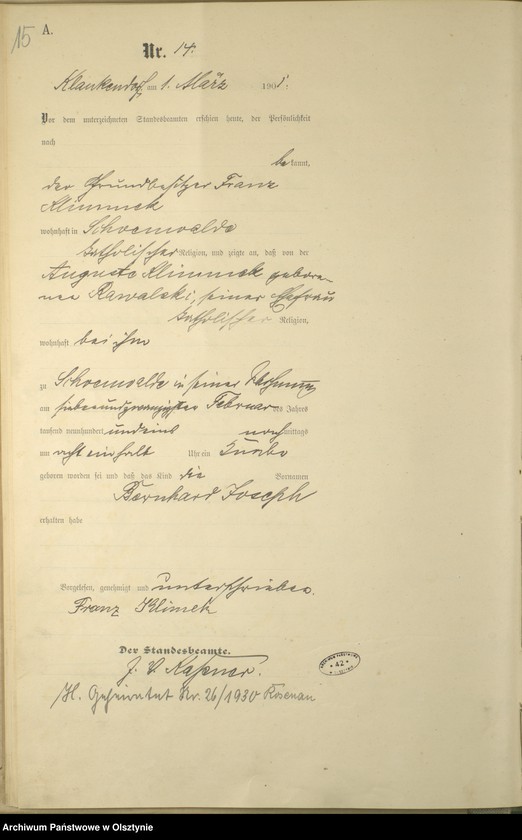 15
A.
Nr. 14.
Klaukendorf am 1. März 1901.
Vor dem unterzeichneten Standesbeamten erschien heute, der Persönlichkeit
nach
bekannt,
der Grundbesitzer Franz
Klimmek
wohnhaft in Schoenwalde
katholischer Religion, und zeigte an, daß von der
Auguste Klimmek gebore-
nen Rawalski, seiner Ehefrau
katholischer Religion,
wohnhaft bei ihm
zu Schoenwalde in seiner Wohnung
am siebenundzwanzigsten Februar des Jahres
tausend neunhundert und eins nachmittags
um acht einhalb Uhr ein Knabe
geboren worden sei und daß das Kind die Vornamen
Bernhard Joseph
erhalten habe
Vorgelesen, genehmigt und unterschrieben.
Franz Klimek
Der Standesbeamte.
J. V.
H. Geheiratet Nr. 26/1930 Rosenau
42
Archiwum Państwowe w Olsztynie